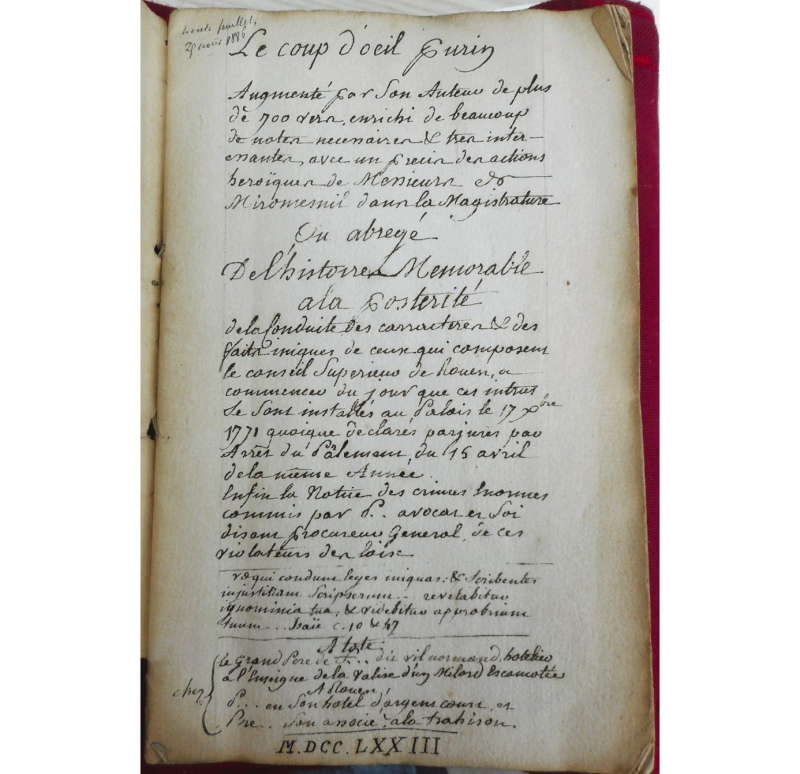 trente feuillets
29 août 1886
Le coup d'oeil Purin
Augmenté par Son Auteur de plus
de 700 vers, enrichi de beaucoup
de notes necessaires & tres inter-
essantes, avec un precis des actions
heroïques de Messieurs de
Miromesnil dans la Magistrature
Ou abregé
De l'histoire Memorable
a la posterité
de la Conduite des carracteres & des
faits iniques de ceux qui composent
le conseil Superieur de Rouen, a
commencer du jour que ces intrus
Se Sont installés au Palais le 17 Xbre
1771 quoique declarés parjures par
Arrêt du Pâlement, du 15 avril
de la même Année.
Enfin la Notice des crimes Enormes
commis par P.. avocat et Soi
disant Procureur General, de ces
violateurs des loix
væ qui condunt leges iniquas: & Scribentes
injustitiam Scripserunt.. revelabitur
ignominia tua, & videbitur opprobrium
tuum... Isaïe c. 10 & 47
le Grand Pere de T... dit vil normand, hotelier
a l'Enseigne de la Valise d'un Milord Escamotée
A Rouen,
chez
P... en Son hotel d'argencourt, et
Pre.. Son associé a la trahison.
M.DCC.LXXIII